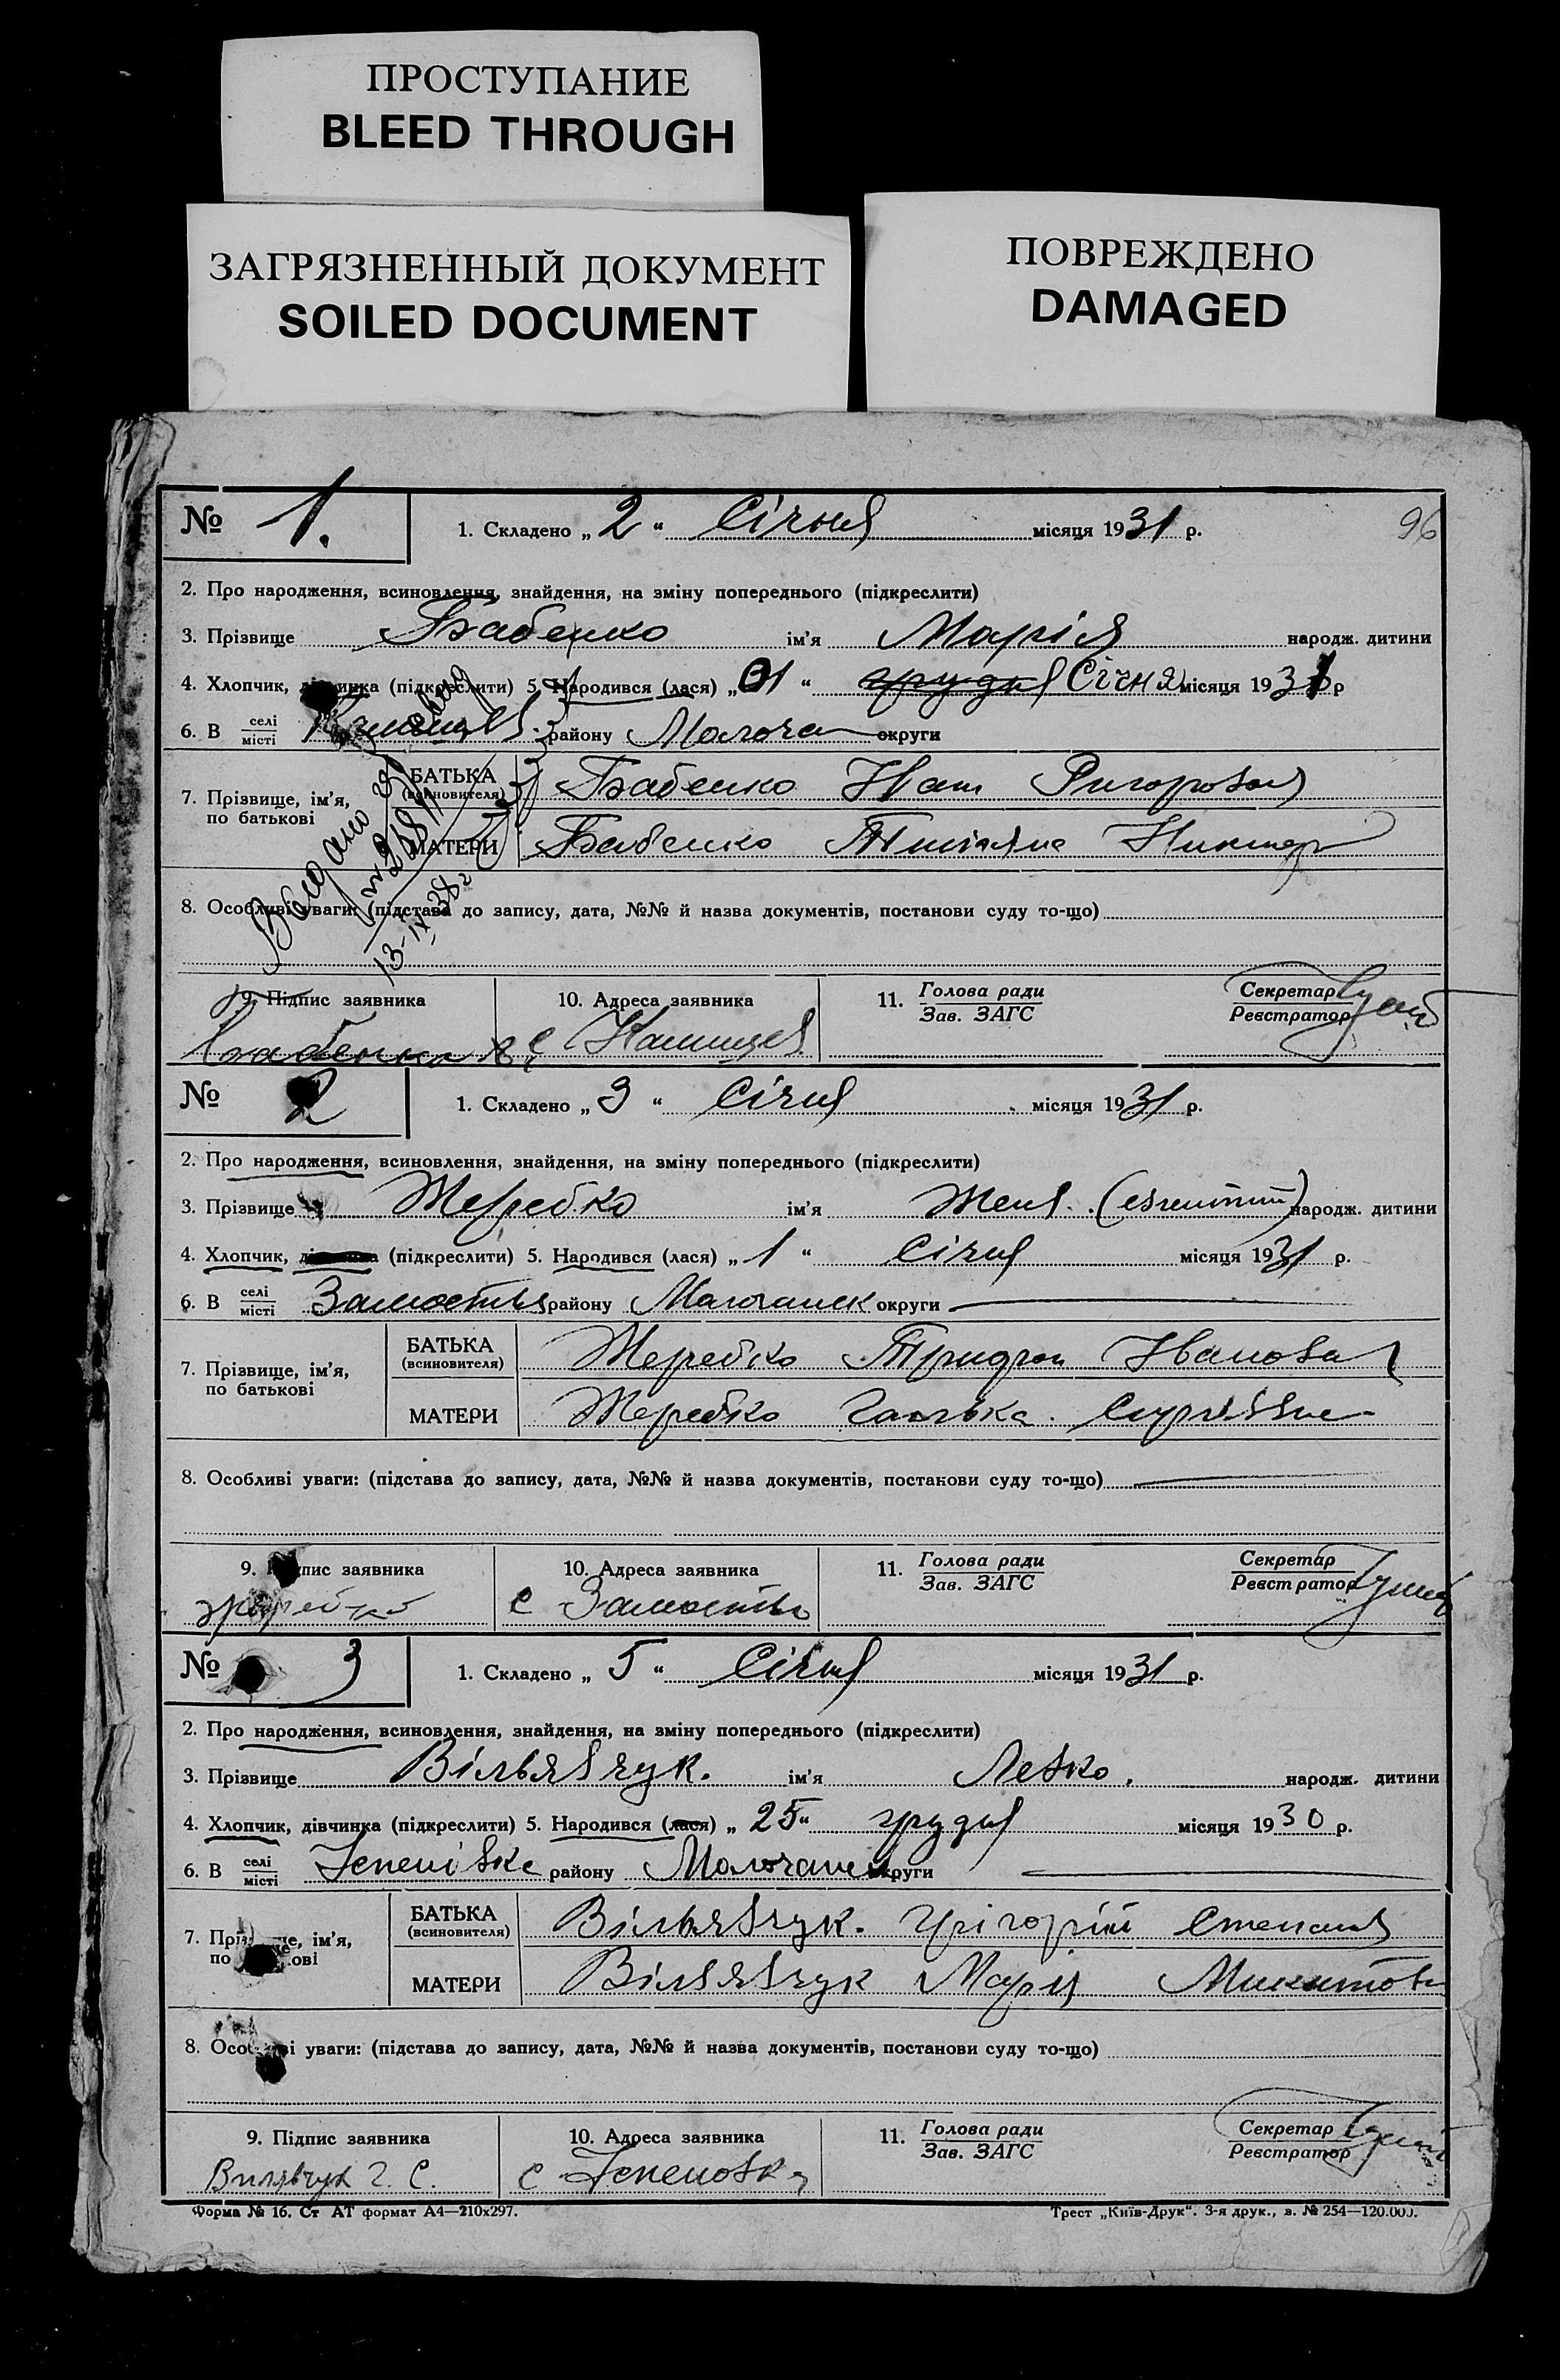 ПРОСТУПАНИЕ
BLEED THROUGH
ЗАГРЯЗНЕННЫЙ ДОКУМЕНТ
SOILED DOCUMENT
ПОВРЕЖДЕНО
DAMAGED
96
№ 1. 1. Складено „ 2 “ Січня місяця 1931 р.
2. Про народження, всиновлення, знайдення, на зміну попереднього (підкреслити)
3. Прізвище Бабенко ім'я Марія народж. дитини
4. Хлопчик, (підкреслити) 5. Народився (лася) „ 01 “ грудня Січня місяця 1931 р
6. В селі/місті району Молоча округи
7. Прізвище, ім'я, по батькові
БАТЬКА (всиновителя) Бабенко Иван Ригорович
МАТЕРИ Бабенко
Видано
13-IX-38
8. Особливі уваги: (підстава до запису, дата, №№ й назва документів, постанови суду то-що)
9. Підпис заявника 10. Адреса заявника 11. Голова ради/Зав. ЗАГС Секретар/Реєстратор
№ 2 1. Складено „ 3 “ Січня місяця 1931 р.
2. Про народження, всиновлення, знайдення, на зміну попереднього (підкреслити)
3. Прізвище Жеребко ім'я Женя народж. дитини
4. Хлопчик, (підкреслити) 5. Народився (лася) „ 1 “ Січня місяця 1931 р.
6. В селі/місті Замостья району Молочанск округи
7. Прізвище, ім'я, по батькові
БАТЬКА (всиновителя) Жеребко Трифон Иванович
МАТЕРИ Жеребко Ганька
8. Особливі уваги: (підстава до запису, дата, №№ й назва документів, постанови суду то-що)
9. Підпис заявника 10. Адреса заявника 11. Голова ради/Зав. ЗАГС Секретар/Реєстратор
с Замостья
№ 3 1. Складено „ 5 “ Січня місяця 1931 р.
2. Про народження, всиновлення, знайдення, на зміну попереднього (підкреслити)
3. Прізвище Вільявчук. ім'я Левко. народж. дитини
4. Хлопчик, дівчинка (підкреслити) 5. Народився (лася) „ 25 “ грудня місяця 1930 р.
6. В селі/місті району Молочанск округи
7. Прізвище, ім'я, по батькові
БАТЬКА (всиновителя) Вільявчук. Григорій Степанов
МАТЕРИ Вільявчук Марія Микитовн
8. Особливі уваги: (підстава до запису, дата, №№ й назва документів, постанови суду то-що)
9. Підпис заявника 10. Адреса заявника 11. Голова ради/Зав. ЗАГС Секретар/Реєстратор
Вилявчук Г. С.
Форма № 16. Ст АТ формат А4—210х297. Трест „Київ-Друк“. 3-я друк., з. № 254—120.000.